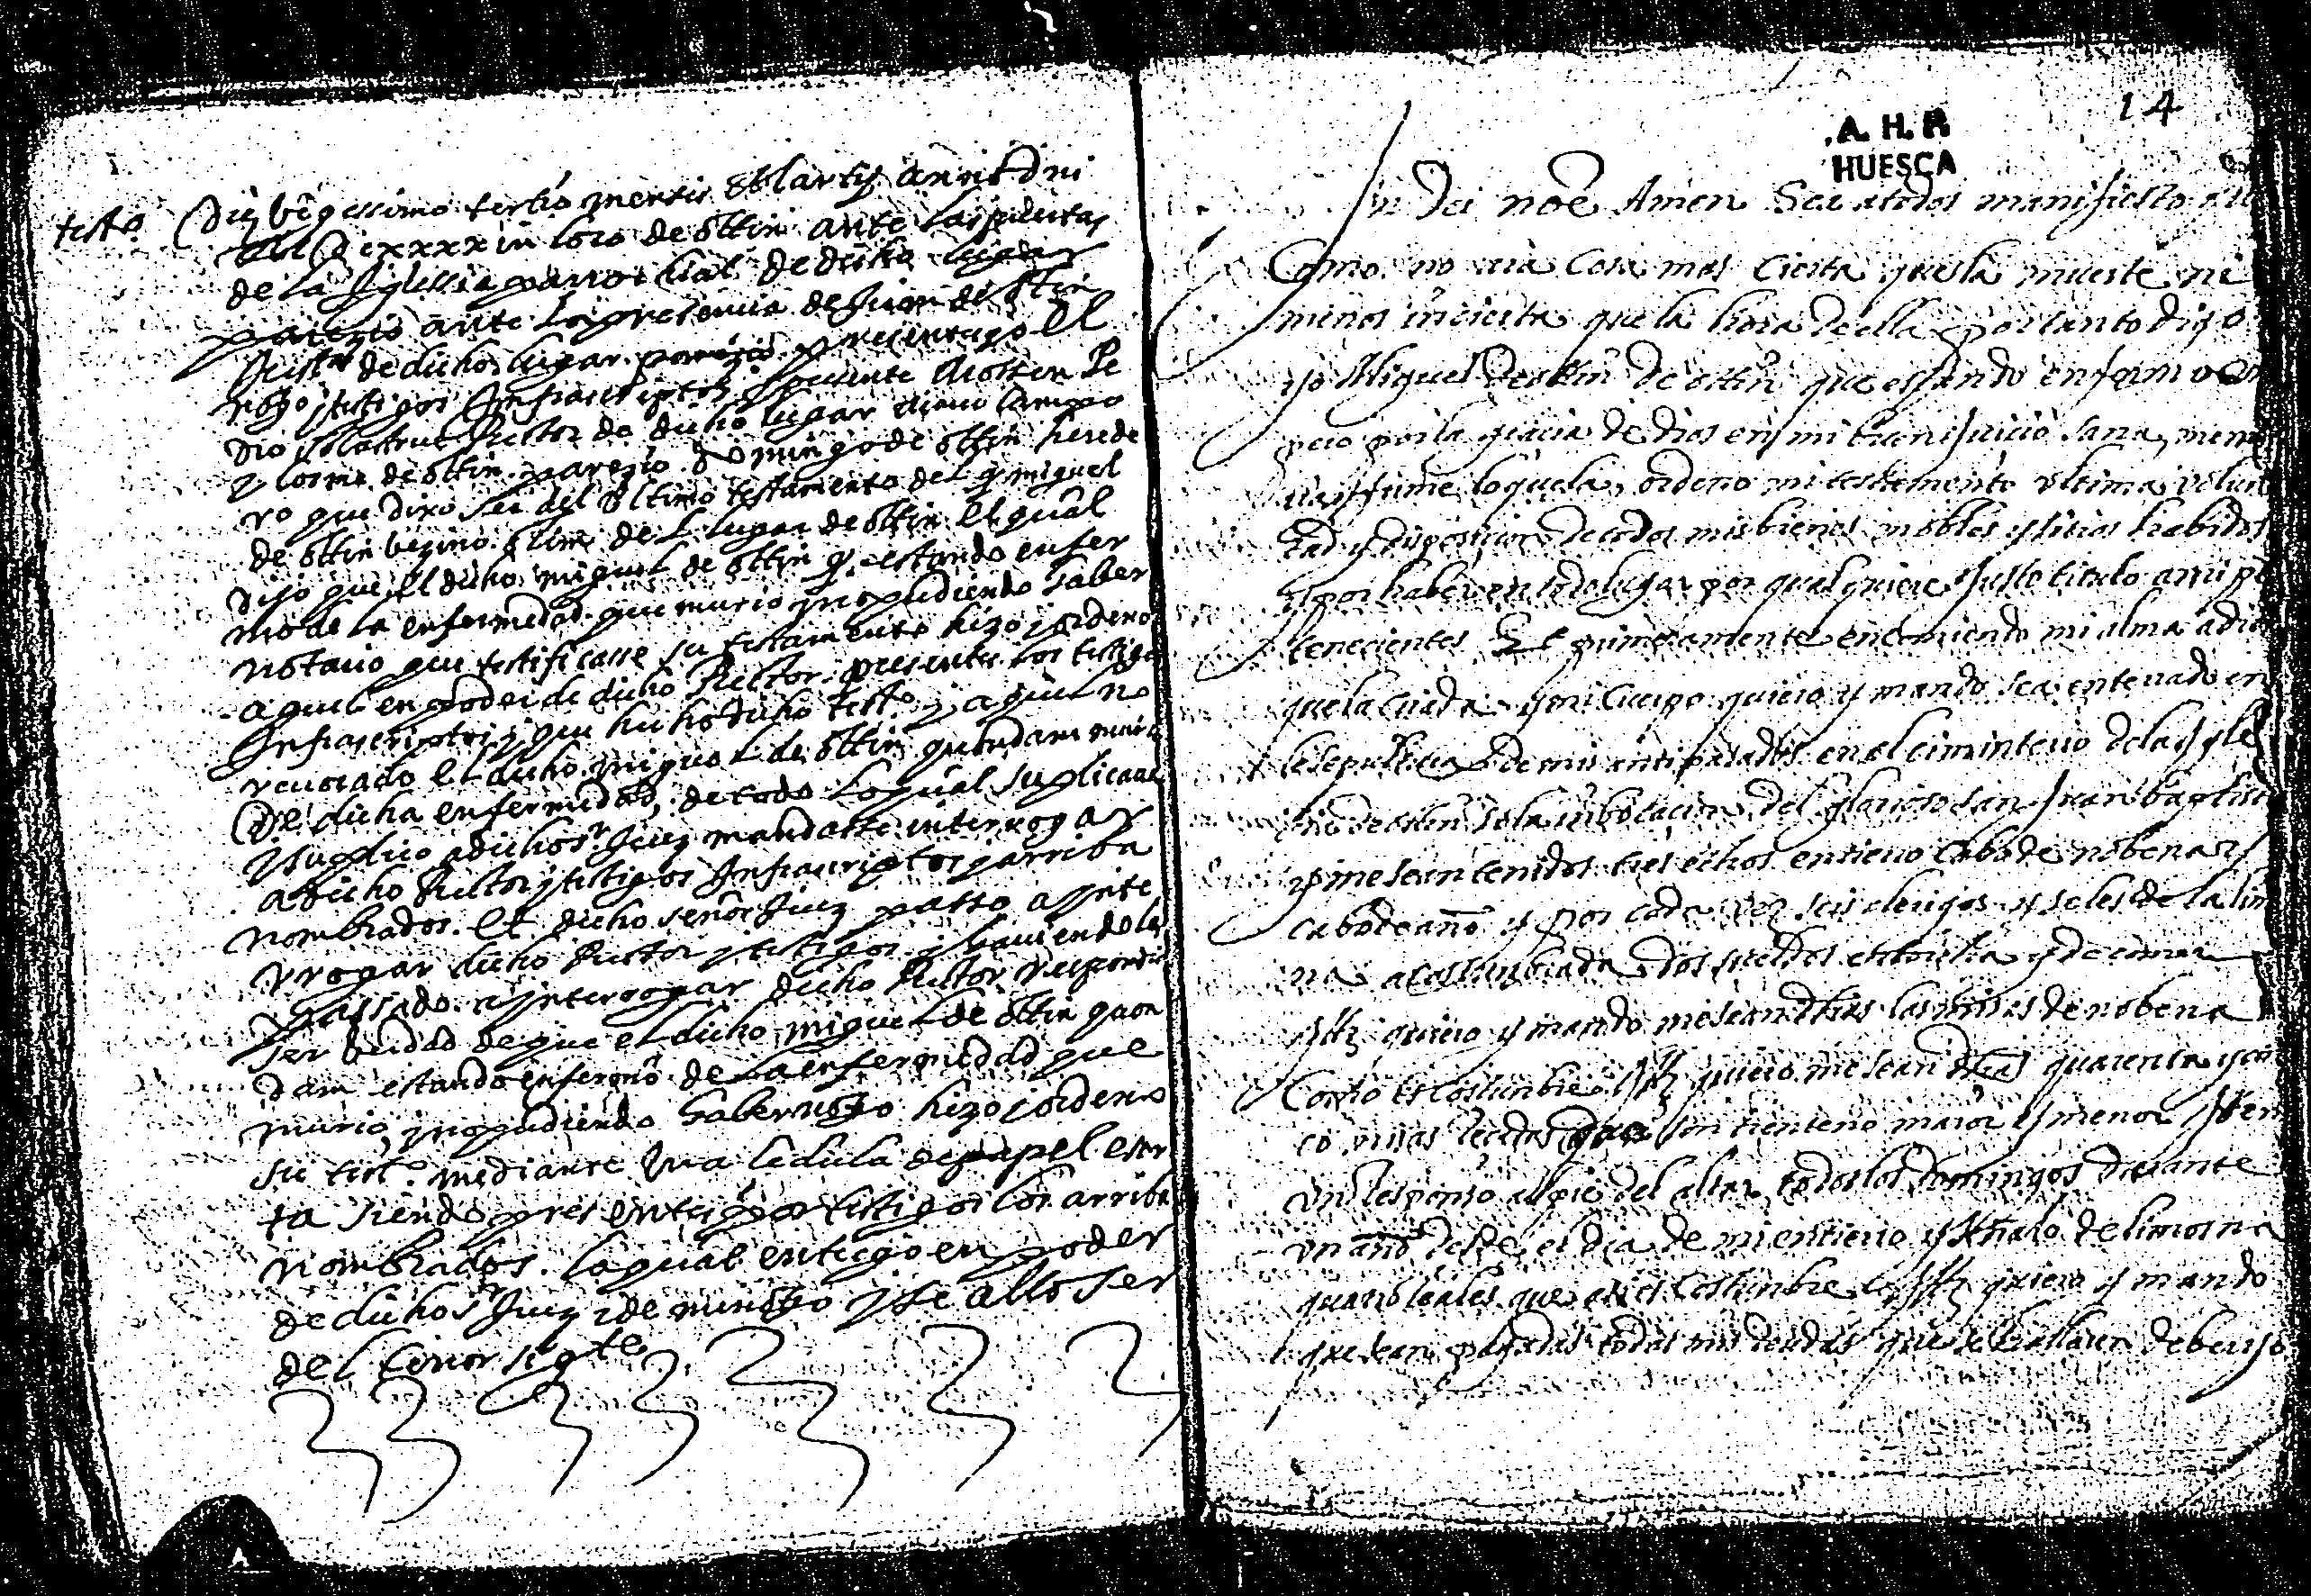 testo
Die vigessimo tertio mensis Martij anni Dni
MDCxxxx in loco de ottin ante las puertas
de la Iglessia parrochial de dicho lugar
parezio ante la presencia de Juan de ottin
Justa de dicho lugar presentes el
nottrio y testigos Infrascriptos
Rector de dicho lugar
y Cosme de ottin parezio Domingo de ottin herede
ro que dixo ser del Ultimo testamento del q miguel
de ottin vezino olim del lugar de ottin el qual
dijo que el dicho miguel de ottin q. estando enfer
mo de la enfermedad que murio y no pudiendo haber
notario que testificasse su testamento hizo y ordeno
aquel en poder de dicho Rector presentes los testigos
Infrascriptos y que hecho dicho testo y aquel no
revocado el dicho miguel de ottin quondam murio
de dicha enfermedad, de todo lo qual
y suplico a dicho sr Juez mandasse interrogar
a dicho Rector y testigos Infrascriptos y arriba
nombrados. et dicho señor Juez passo a inte
rrogar dicho Rector y testigos y haviendoles
passado a interrogar dicho Rector respondio
ser verdad de que el dicho miguel de ottin quon
dam estando enfermo de la enfermedad que
murio, y no pudiendo haber nottro hizo y ordeno
su testo. mediante una cedula de papel escri
ta siendo presentes por testigos los arriba
nombrados. la qual entrego en poder
de dicho sr Juez y de mi nottro y se allo ser
del tenor sigte
14
A. H. P.
HUESCA
In Dei nõe Amen Sea a todos manifiesto que
Como no aia Cosa mas Cierta que la muerte ni
menos incierta que la hora de ella por tanto digo
yo Miguel de ottin de ottin que estando enfermo
pero por la gracia de Dios en mi buen juicio sana, memo
ria y firme loquela, ordeno mi testamento ultima volun
tad y disposicion de todos mis bienes mobles y sitios habidos
y por haber en todo lugar por qualquiere justo titulo a mi per
tenecientes Et primeramente encomiendo mi alma a dios
que la criado y mi Cuerpo quiero y mando sea enterrado en
la sepultura de mis antipasados en el ciminterio de la yglesi
de ottin so la inbocacion del glorioso san Juan baptista
y me sean tenidos tres echos entierro Cabo de nobena y
cabo de año y por cada vez seis clerigos y se les de la limos
na acostumbrada dos sueldos y de comer
Ittz quiero y mando me sean dhas las misas de nobena
Como es Costumbre Ittz quiero me sean dhas quarenta y cin
co misas recadas treinteno maior y menor Item
un responso al pie del altar todos los domingos durante
un año desde el dia de mi entierro y señalo de limosna
quatro reales que asi es Costumbre Ittz quiero y mando
que sean pagadas todas mis deudas que se hallaren deber yo